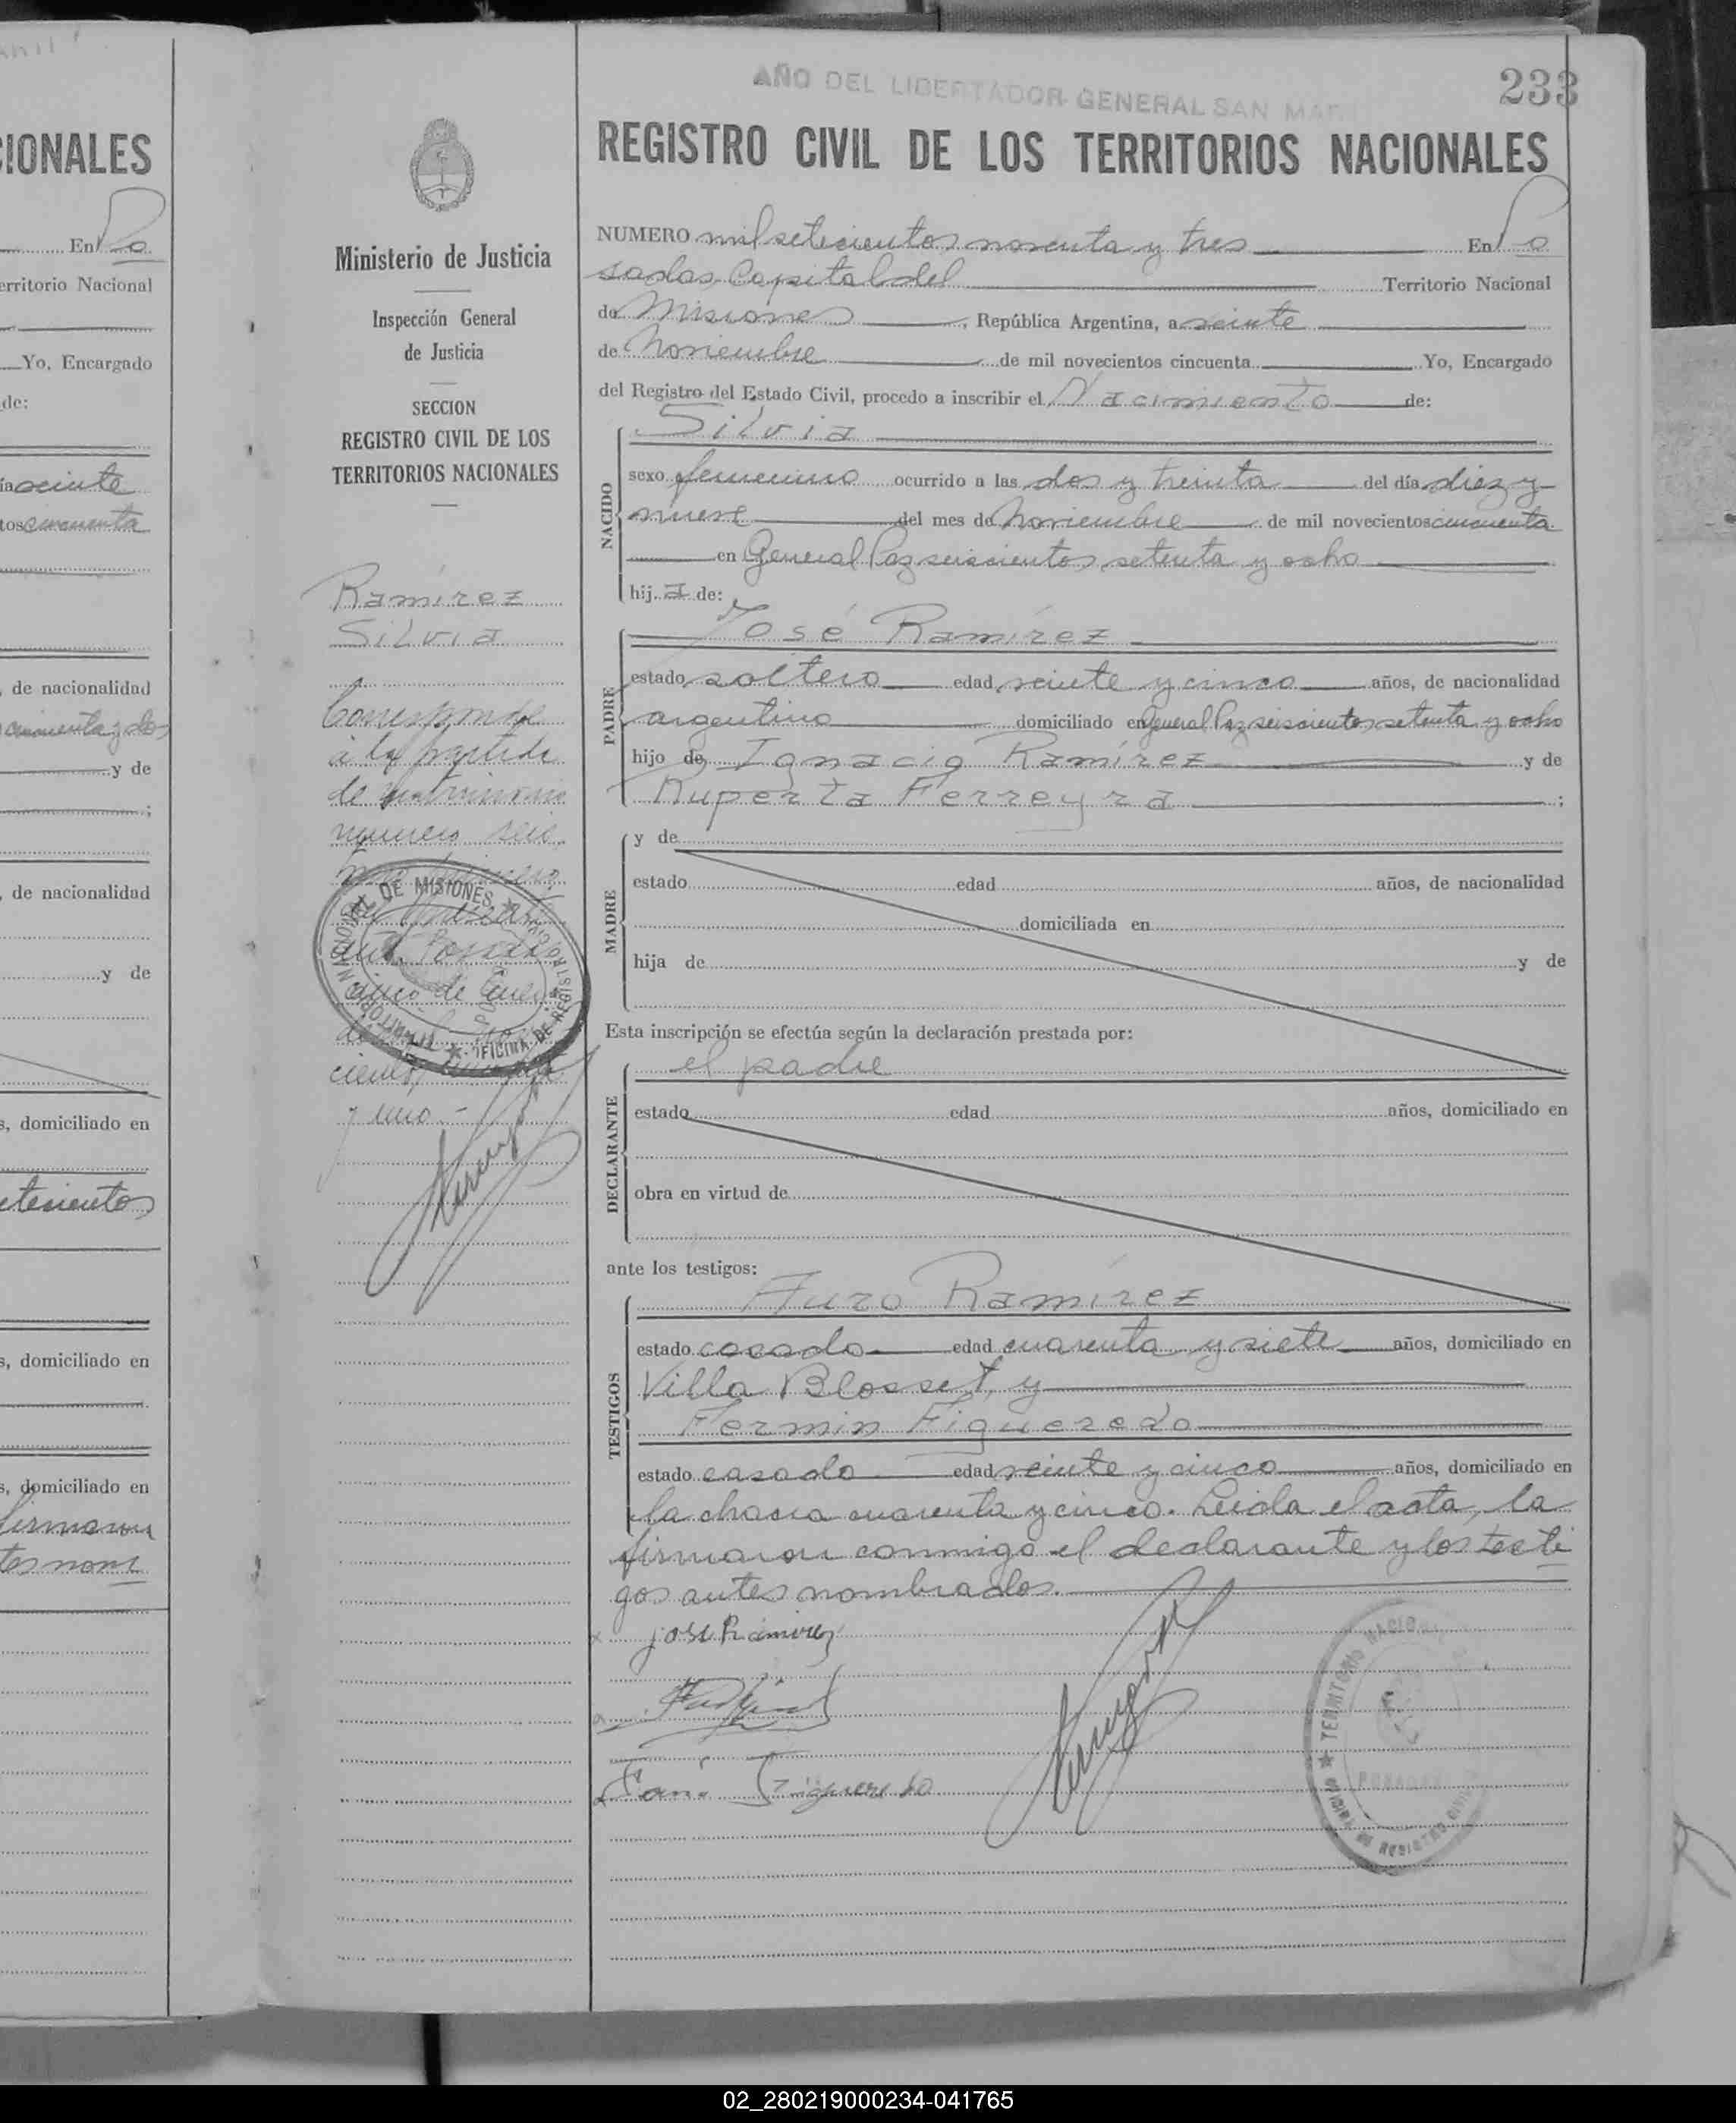 IONALES
En Po
erritorio Nacional
Yo, Encargado
de:
ia veinte
tos cincuenta
, de nacionalidad
cincuenta y dos
y de
, de nacionalidad
y de
s, domiciliado en
etecientos
s, domiciliado en
s, domiciliado en
firmaron
tes nom
Ministerio de Justicia
Inspección General
de Justicia
SECCION
REGISTRO CIVIL DE LOS
TERRITORIOS NACIONALES
Ramírez
Silvia
Corresponde
a la partida
de matrimonio
número seis
Posadas
cinco de Enero
y uno.-
AÑO DEL LIBERTADOR GENERAL SAN MAR
233
REGISTRO CIVIL DE LOS TERRITORIOS NACIONALES
NUMERO mil setecientos noventa y tres En Po
sadas, Capital del Territorio Nacional
de Misiones, República Argentina, a veinte
de Noviembre de mil novecientos cincuenta Yo, Encargado
del Registro del Estado Civil, procedo a inscribir el Nacimiento de:
NACIDO
Silvia
sexo femenino ocurrido a las dos y treinta del día diez y
nueve del mes de Noviembre de mil novecientos cincuenta
en General Paz seiscientos setenta y ocho
hij a de:
PADRE
José Ramírez
estado soltero edad veinte y cinco años, de nacionalidad
argentino domiciliado en General Paz seiscientos setenta y ocho
hijo de Ignacio Ramírez y de
Ruperta Ferreyra ;
MADRE
y de
estado edad años, de nacionalidad
domiciliada en
hija de y de
Esta inscripción se efectúa según la declaración prestada por:
DECLARANTE
el padre
estado edad años, domiciliado en
obra en virtud de
ante los testigos:
TESTIGOS
Ramírez
estado casado edad cuarenta y siete años, domiciliado en
Villa Blosset, y
Fermin Figueredo
estado casado edad veinte y cinco años, domiciliado en
la chacra cuarenta y cinco. Leída el acta, la
firmaron conmigo el declarante y los testi
gos antes nombrados.
José Ramirez
Figueredo
TERRITORIO NACIONAL
POSADAS
OFICINA DE REGISTRO CIVIL
DE MISIONES
OFICINA DE REGISTRO
02_280219000234-041765